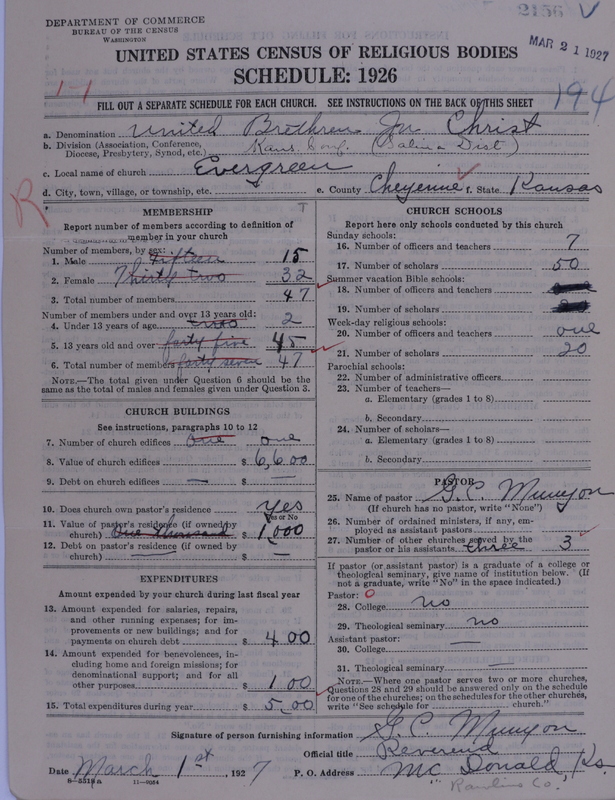 DEPARTMENT OF COMMERCE
BUREAU OF THE CENSUS
WASHINGTON
2156 V
MAR 21 1927
UNITED STATES CENSUS OF RELIGIOUS BODIES
SCHEDULE: 1926
1-1
194
FILL OUT A SEPARATE SCHEDULE FOR EACH CHURCH. SEE INSTRUCTIONS ON THE BACK OF THIS SHEET
a. Denomination United Brethren In Christ
b. Division (Association, Conference, Diocese, Presbytery, Synod, etc.) Kans. Conf. (Salina Dist)
c. Local name of church Evergreen
d. City, town, village, or township, etc.
e. County Cheyenne f. State Kansas
R
MEMBERSHIP
Report number of members according to definition of member in your church
Number of members, by sex:
1. Male fifteen 15
2. Female Thirty two 32
3. Total number of members 47
Number of members under and over 13 years old:
4. Under 13 years of age two 2
5. 13 years old and over forty five 45
6. Total number of members forty seven 47
NOTE.—The total given under Question 6 should be the same as the total of males and females given under Question 3.
CHURCH BUILDINGS
See instructions, paragraphs 10 to 12
7. Number of church edifices One one
8. Value of church edifices $ 6,600
9. Debt on church edifices — $ —
10. Does church own pastor's residence yes
Yes or No
11. Value of pastor's residence (if owned by church) One thousand $ 1,000
12. Debt on pastor's residence (if owned by church) — $ —
EXPENDITURES
Amount expended by your church during last fiscal year
13. Amount expended for salaries, repairs, and other running expenses; for improvements or new buildings; and for payments on church debt $ 400
14. Amount expended for benevolences, including home and foreign missions; for denominational support; and for all other purposes $ 100
15. Total expenditures during year $ 500
CHURCH SCHOOLS
Report here only schools conducted by this church
Sunday schools:
16. Number of officers and teachers 7
17. Number of scholars 50
Summer vacation Bible schools:
18. Number of officers and teachers
19. Number of scholars
Week-day religious schools:
20. Number of officers and teachers one
21. Number of scholars 20
Parochial schools:
22. Number of administrative officers
23. Number of teachers—
a. Elementary (grades 1 to 8)
b. Secondary
24. Number of scholars—
a. Elementary (grades 1 to 8)
b. Secondary
PASTOR
25. Name of pastor G. C. Munyon
(If church has no pastor, write "None")
26. Number of ordained ministers, if any, employed as assistant pastors
27. Number of other churches served by the pastor or his assistants three 3
If pastor (or assistant pastor) is a graduate of a college or theological seminary, give name of institution below. (If not a graduate, write "No" in the space indicated.)
Pastor: O
28. College no
29. Theological seminary no
Assistant pastor: —
30. College
31. Theological seminary —
NOTE.—Where one pastor serves two or more churches, Questions 28 and 29 should be answered only on the schedule for one of the churches; on the schedules for the other churches, write "See schedule for church."
Signature of person furnishing information G. C. Munyon
Official title Reverend
Date March 1st, 1927
P. O. Address Mc Donald, Ks.
Rawlins Co.